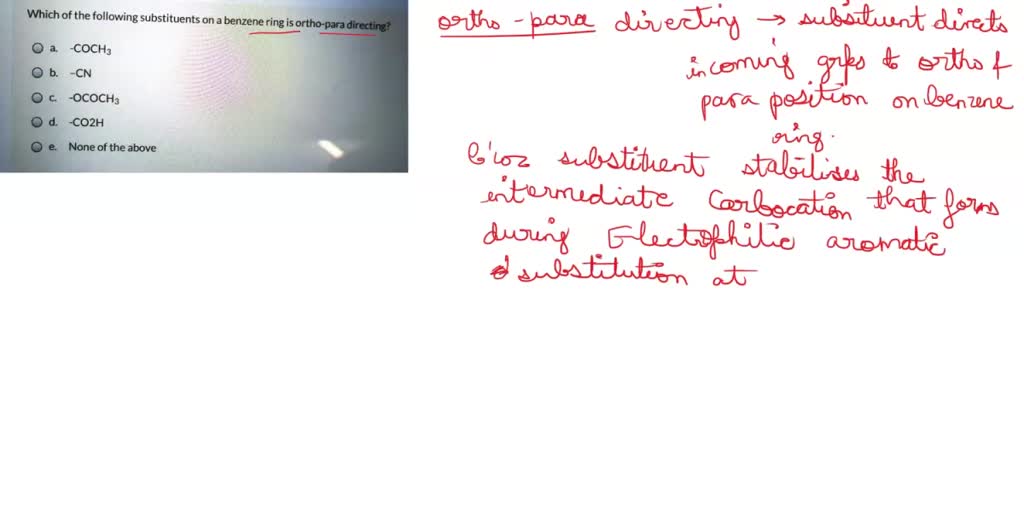 Which of the following substituents on a benzene ring is ortho-para directing?
a. -COCH₃
b. -CN
c. -OCOCH₃
d. -CO2H
e. None of the above
ortho-para directing → subsituent directs
incoming grps to ortho &
para position on benzene
ring.
b'coz substituent stabilises the
intermediate Carbocation that forms
during Electrophilic aromatic
substitution at